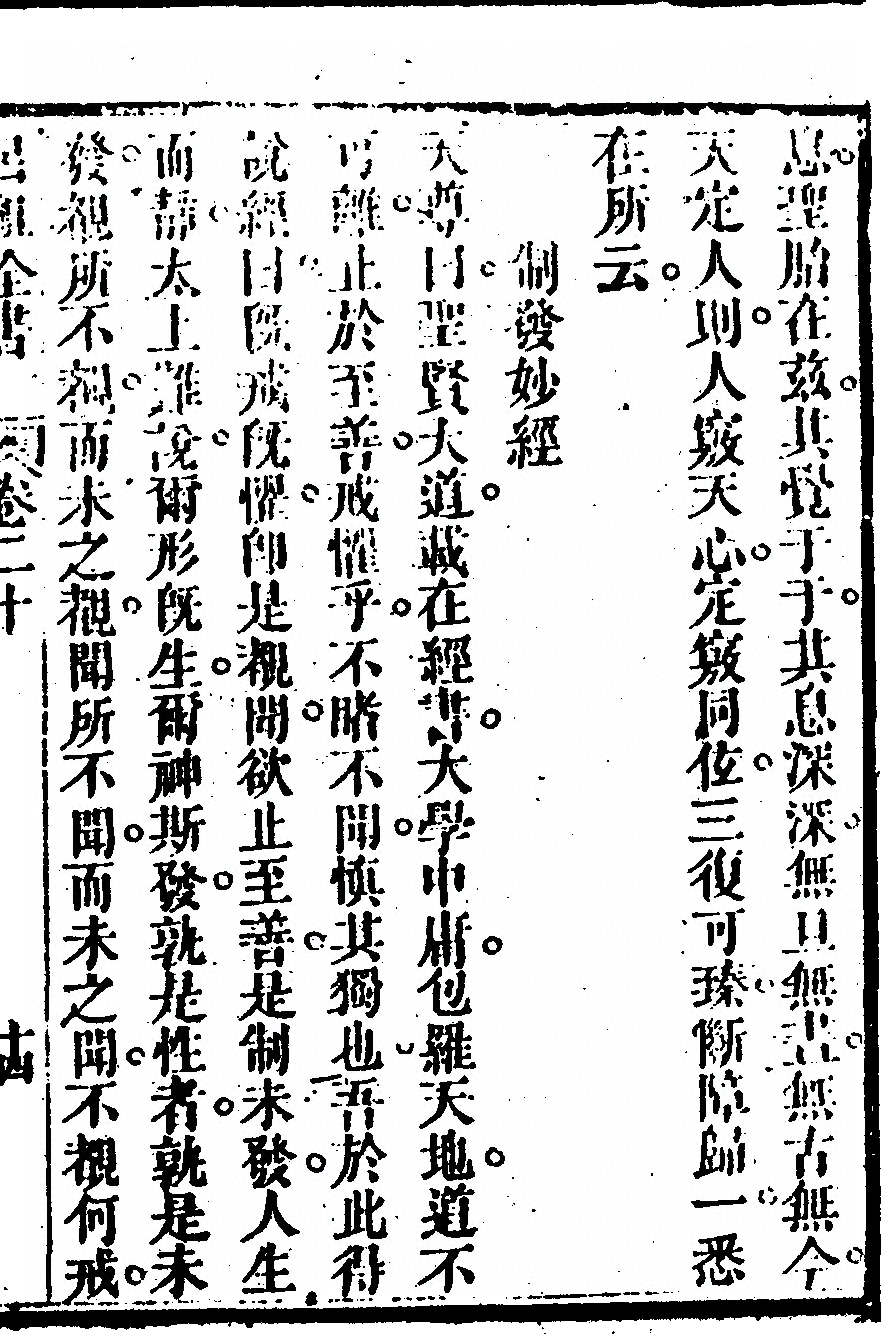 息聖胎在茲其覺于于其息深深無旦無晝無古無今
天定人則人竅天心定竅同位三復可臻斷障歸一悉
在所云
制發妙經
天尊曰聖賢大道載在經書大學中庸包羅天地道不
可離止於至善戒懼乎不睹不聞慎其獨也吾於此得
說經曰既戒既懼卽是覩聞欲止至善是制未發人生
而靜太上難說爾形既生爾神斯發孰是性者孰是未
發覩所不覩而未之覩聞所不聞而未之聞不覩何戒
呂祖全書 卷二十 十四